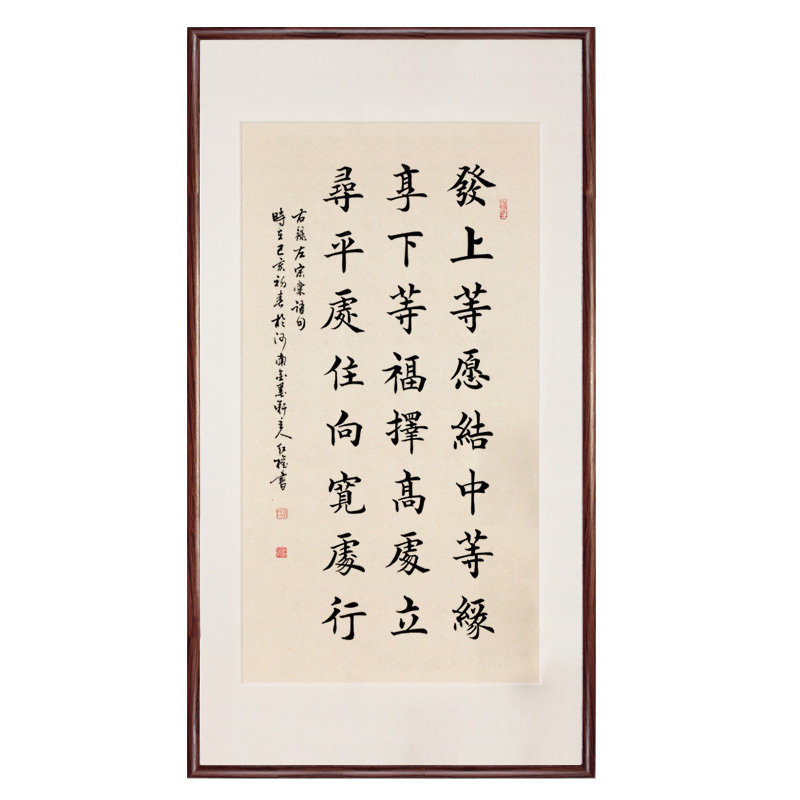 發上等愿結中等緣
享下等福擇高處立
尋平處住向寬處行
右錄左宗棠語句
時在己亥初春於河南金墨軒主人紅權書